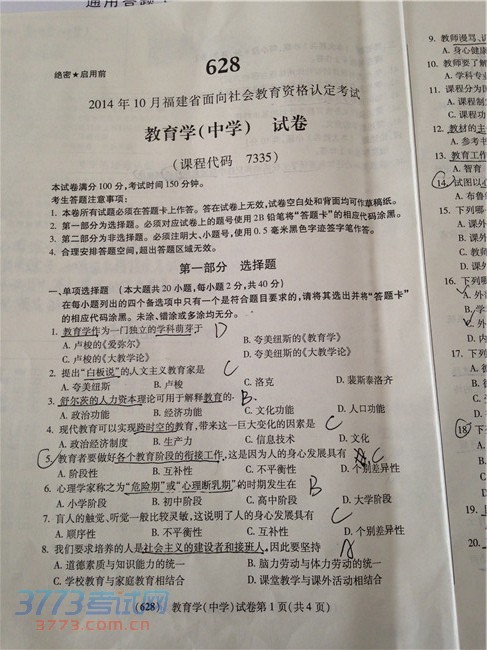 通用答题
绝密★启用前
628
2014年10月福建省面向社会教育资格认定考试
教育学(中学) 试卷
(课程代码 7335)
本试卷满分100分,考试时间150分钟。
考生答题注意事项:
1. 本卷所有试题必须在答题卡上作答。答在试卷上无效,试卷空白处和背面均可作草稿纸。
2. 第一部分为选择题。必须对应试卷上的题号使用2B铅笔将“答题卡”的相应代码涂黑。
3. 第二部分为非选择题。必须注明大、小题号,使用0.5毫米黑色字迹签字笔作答。
4. 合理安排答题空间,超出答题区域无效。
第一部分 选择题
一、单项选择题 (本大题共20小题,每小题2分,共40分)
在每小题列出的四个备选项中只有一个是符合题目要求的,请将其选出并将“答题卡”
的相应代码涂黑。未涂、错涂或多涂均无分。
1. 教育学作为一门独立的学科萌芽于 D
A. 卢梭的《爱弥尔》 B. 夸美纽斯的《教育学》
C. 卢梭的《大教学论》 D. 夸美纽斯的《大教学论》
2. 提出“白板说”的人文主义教育家是 C
A. 夸美纽斯 B. 卢梭 C. 洛克 D. 裴斯泰洛齐
3. 舒尔茨的人力资本理论可用于解释教育的 B.
A. 政治功能 B. 经济功能 C. 文化功能 D. 人口功能
4. 现代教育可以实现跨时空的教育,带来这一巨大变化的因素是 C
A. 政治经济制度 B. 生产力 C. 信息技术 D. 文化
5. 教育者要做好各个教育阶段的衔接工作,这是因为人的身心发展具有 C
A. 阶段性 B. 互补性 C. 不平衡性 D. 个别差异性
6. 心理学家称之为“危险期”或“心理断乳期”的时期发生在 B
A. 小学阶段 B. 初中阶段 C. 高中阶段 D. 大学阶段
7. 盲人的触觉、听觉一般比较灵敏,这说明了人的身心发展具有 C
A. 顺序性 B. 不平衡性 C. 互补性 D. 个别差异性
8. 我们要求培养的人是社会主义的建设者和接班人,因此要坚持 A
A. 道德素质与知识能力的统一 B. 脑力劳动与体力劳动的统一
C. 学校教育与家庭教育相结合 D. 课堂教学与课外活动相结合
(628) 教育学(中学)试卷第1页(共4页)
3773考试网
www.3773.com.cn
9. 教师漫骂、
A. 身心健康
10. 教师要了解
A. 学科专业
11. 课程分为
A. 课程制
C. 课程功
12. 教材的主
A. 参考书
13. 教育工作
A. 智育
14. 试图以
A. 布鲁
15. 下列哪
A. 课外
B. 课外
C. 教师
D. 课外
16. 下列
A. 外
B. 学
17. 下列
A.
C.
18. 下
A.
19.
20.